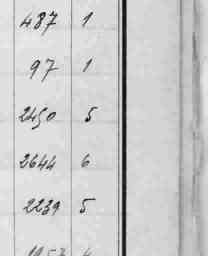 487 1
97 1
2450 5
2644 6
2239 5